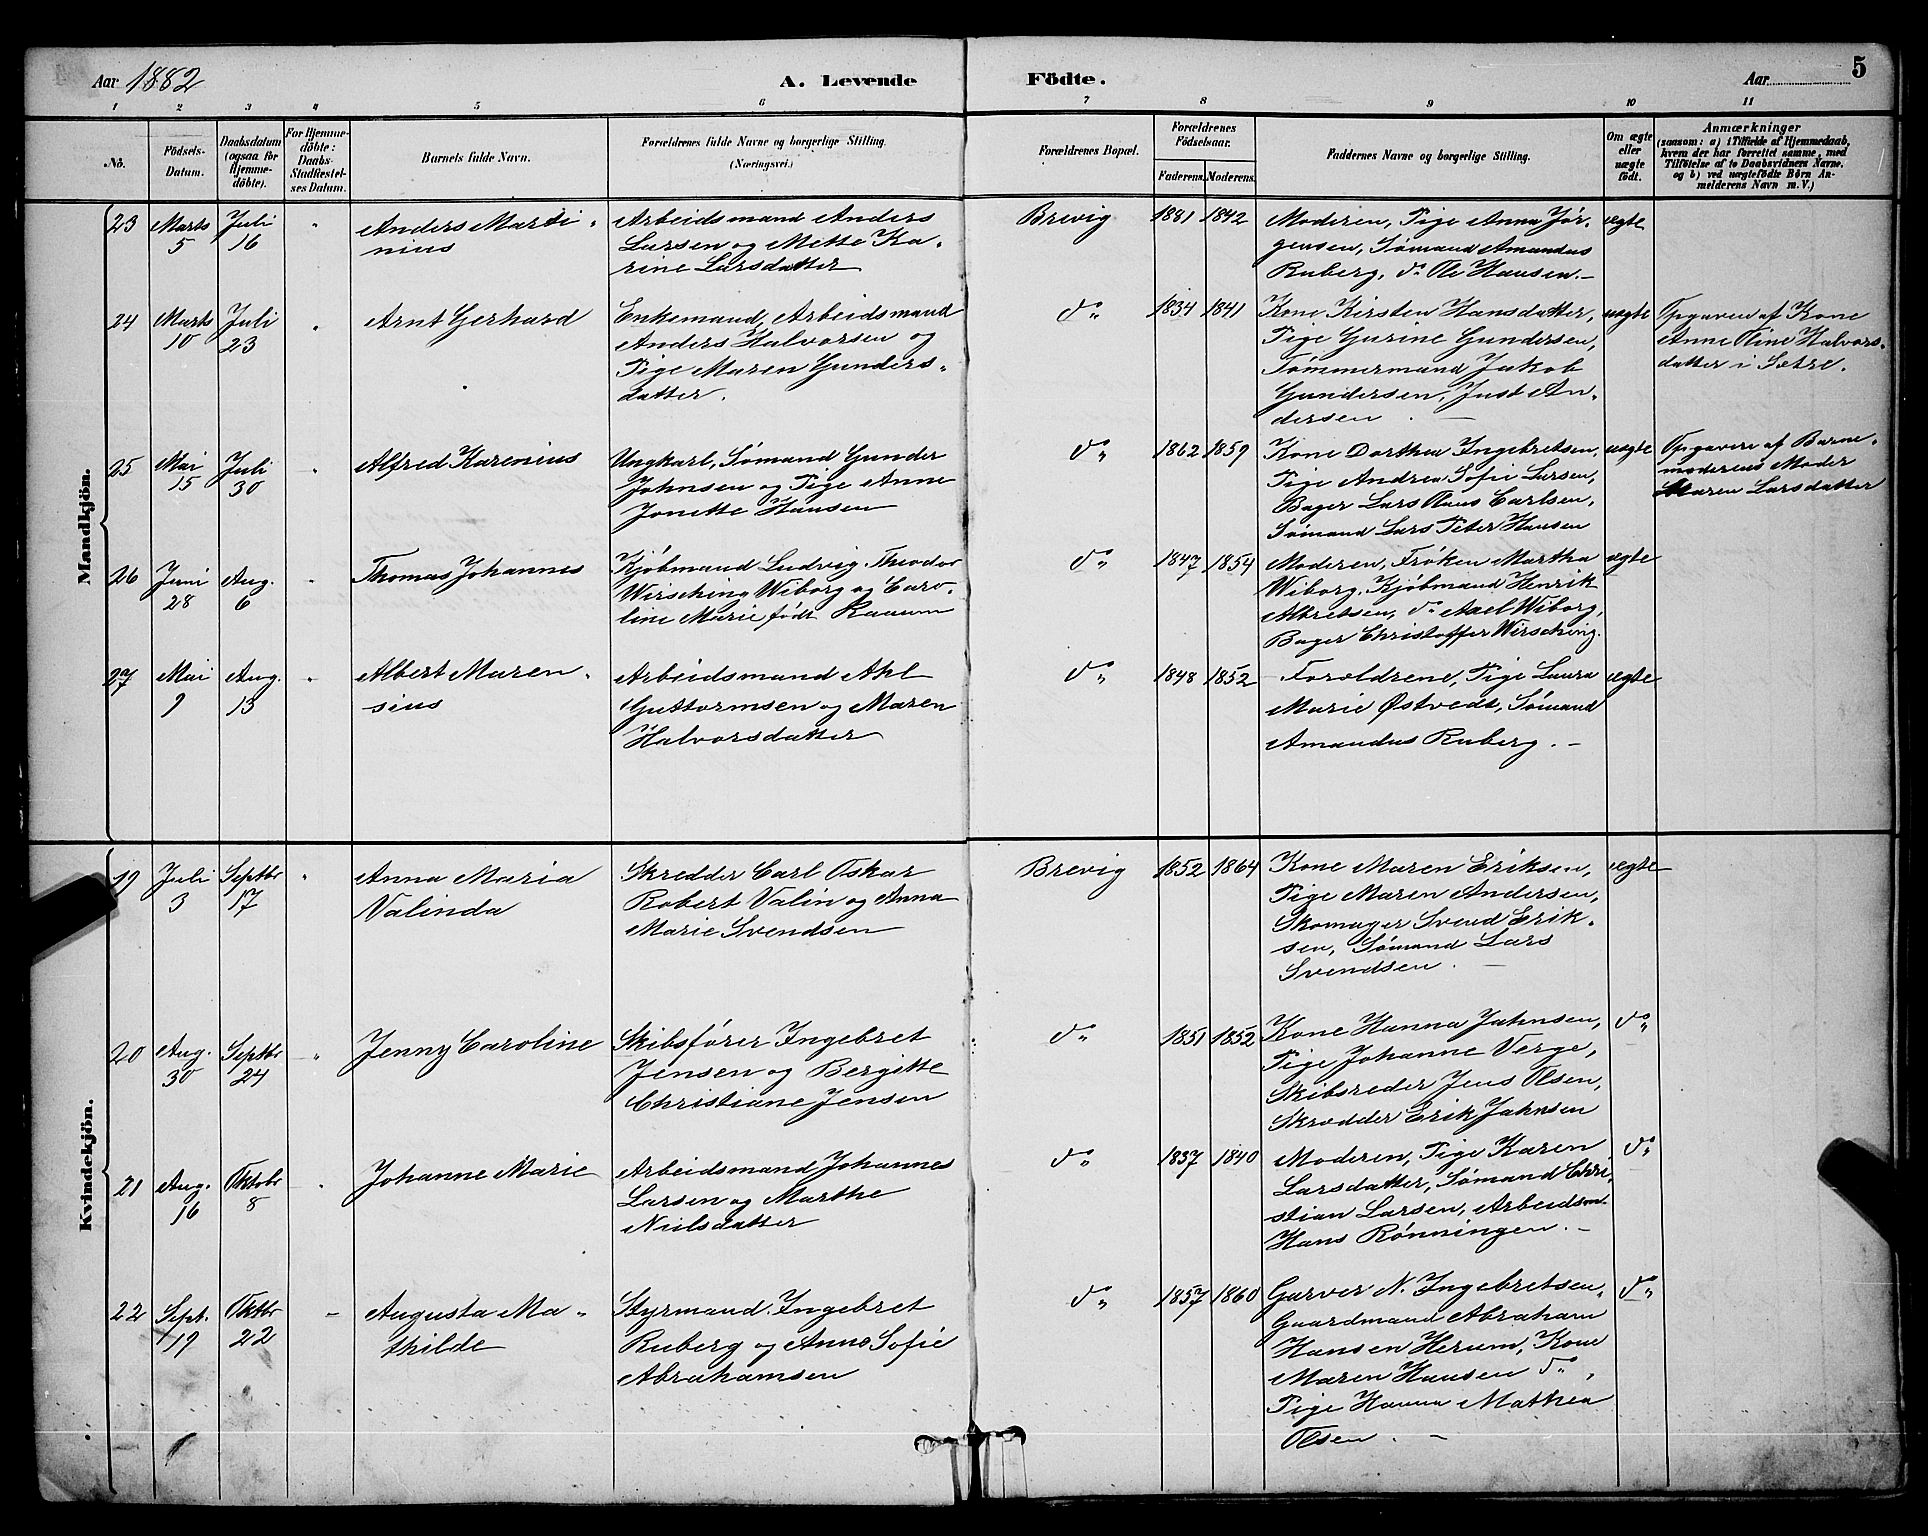 Aar 1882
A. Levende Födte.
Aar 5
1 2 3 4 5 6 7 8 9 10 11
No.
Födsels-
Datum.
Daabsdatum
(ogsaa for
Hjemme-
döbte).
For Hjemme-
döbte:
Daabs-
Stadfæstel-
ses Datum.
Barnets fulde Navn.
Forældrenes fulde Navne og borgerlige Stilling.
(Næringsvei.)
Forældrenes Bopæl.
Forældrenes
Födselsaar.
Faderens. Moderens.
Faddernes Navne og borgerlige Stilling.
Om ægte
eller
uægte
födt.
Anmærkninger
(saasom: a) i Tilfælde af Hjemmedaab,
hvem der har forrettet samme, med
Tilföielse af to Daabsvidners Navne,
og b) ved uægtefödte Börn An-
melderens Navn m. V.)
Mandkjön.
23
Marts
5
Juli
16
"
Anders Marti-
nius
Arbeidsmand Anders
Larsen og Mette Ka-
rine Larsdatter
Brevig
1881 1842
Moderen, Pige Anna Jør-
gensen, Sømand Amandus
Ruberg, do Ole Hansen.-
ægte
24
Marts
10
Juli
23
"
Arnt Gerhard
Enkemand, Arbeidsmand
Anders Halvorsen og
Pige Maren Gunders-
datter.
do
1834 1841
Kone Kirsten Hansdatter,
Pige Gurine Gundersen,
Tømmermand Jakob
Gundersen, Just An-
dersen
uægte
Opgaven af Kone
Anne Oline Halvors-
datter i Sætre.
25
Mai
15
Juli
30
"
Alfred Karenius
Ungkarl, Sømand Gunder
Johnsen og Pige Anne
Jonette Hansen
do
1862 1859
Kone Dorthea Ingebretsen,
Pige Andrea Sofie Larsen,
Bager Lars Claus Carlsen,
Sømand Lars Peter Hansen
uægte
Opgaven af Barne-
moderens Moder
Maren Larsdatter
26
Juni
28
Aug.
6
"
Thomas Johannes
Kjøbmand Ludvig Theodor
Wirsching Wiborg og Caro-
line Marie født Raaum
do
1847 1854
Moderen, Frøken Martha
Wiborg, Kjøbmand Henrik
Albretsen, do Axel Wiborg,
Bager Christoffer Wirsching.
ægte
27
Mai
9
Aug.
13
"
Albert Maren-
sius
Arbeidsmand Ahl
Guttormsen og Maren
Halvorsdatter
do
1848 1852
Forældrene, Pige Laura
Marie Østvedt, Sømand
Amandus Ruberg.-
ægte
Kvindekjön.
19
Juli
3
Septbr
17
"
Anna Maria
Valinda
Skredder Carl Oskar
Robert Valin og Anna
Marie Svendsen
Brevig
1852 1864
Kone Maren Eriksen,
Pige Maren Andersen,
Skomager Svend Erik-
sen, Sømand Lars
Svendsen.
ægte
20
Aug.
30
Septbr
24
"
Jenny Caroline
Skibsfører Ingebret
Jensen og Bergitte
Christiane Jensen
do
1851 1852
Kone Hanna Jahnsen,
Pige Johanne Verge,
Skibsreder Jens Olsen,
Skrædder Erik Jahnsen
do
21
Aug.
16
Oktobr
8
Johanne Marie
Arbeidsmand Johannes
Larsen og Marthe
Nielsdatter
do
1837 1840
Moderen, Pige Karen
Larsdatter, Sømand Chri-
stian Larsen, Arbeidsm.
Hans Rønningen.-
do
22
Sept.
19
Oktbr
22
-
Augusta Ma-
thilde
Styrmand Ingebret
Ruberg og Anne Sofie
Abrahamsen
do
1857 1860
Garver N. Ingebretsen,
Gaardmand Abraham
Hansen Herum, Kone
Maren Hansen do,
Pige Hanna Mathea
Olsen.-
do